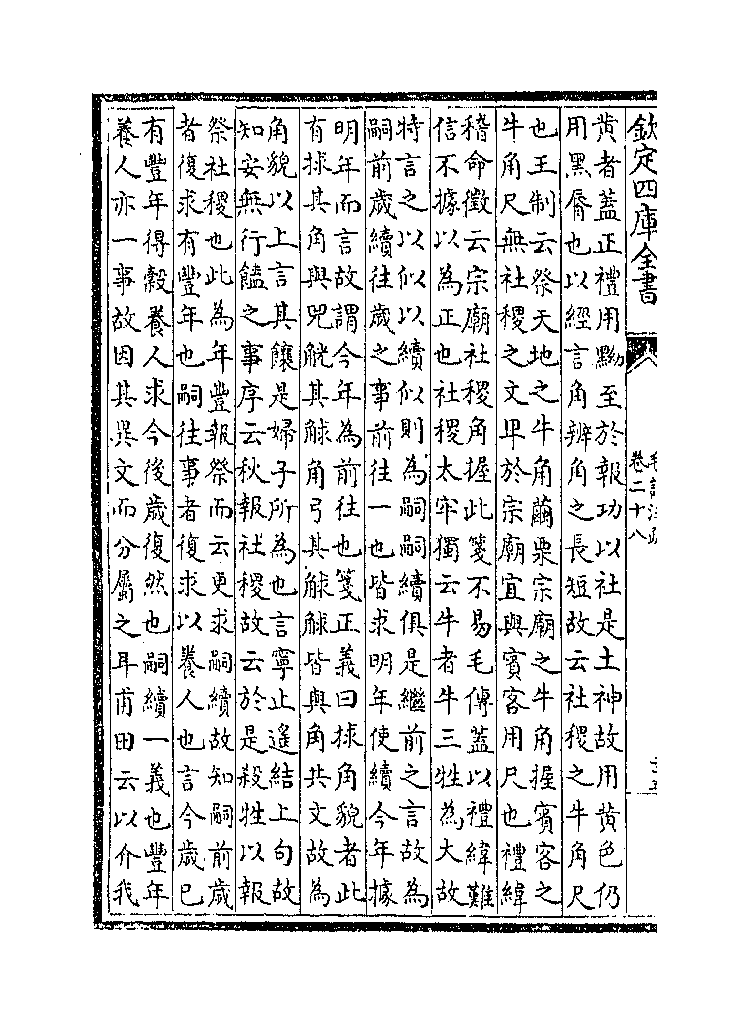 欽定四庫全書
卷二十八
黄者蓋正禮用黝至於報功以社是土神故用黄色仍
用黑脣也以經言角辨角之長短故云社稷之牛角尺
也王制云祭天地之牛角繭栗宗廟之牛角握賓客之
牛角尺無社稷之文卑於宗廟宜與賓客用尺也禮緯
稽命徵云宗廟社稷角握此箋不易毛傳蓋以禮緯難
信不據以為正也社稷太牢獨云牛者牛三牲為大故
特言之以似以續似則為嗣嗣續俱是繼前之言故為
嗣前歲續往歲之事前往一也皆求明年使續今年據
明年而言故謂今年為前往也箋正義曰捄角貌者此
有捄其角與兕觥其觩角弓其觩觩皆與角共文故為
角貌以上言其饟是婦子所為也言寧止遙結上句故
知安無行饁之事序云秋報社稷故云於是殺牲以報
祭社稷也此為年豐報祭而云更求嗣續故知嗣前歲
者復求有豐年也嗣往事者復求以養人也言今歲已
有豐年得穀養人求今後歲復然也嗣續一義也豐年
養人亦一事故因其異文而分屬之耳甫田云以介我